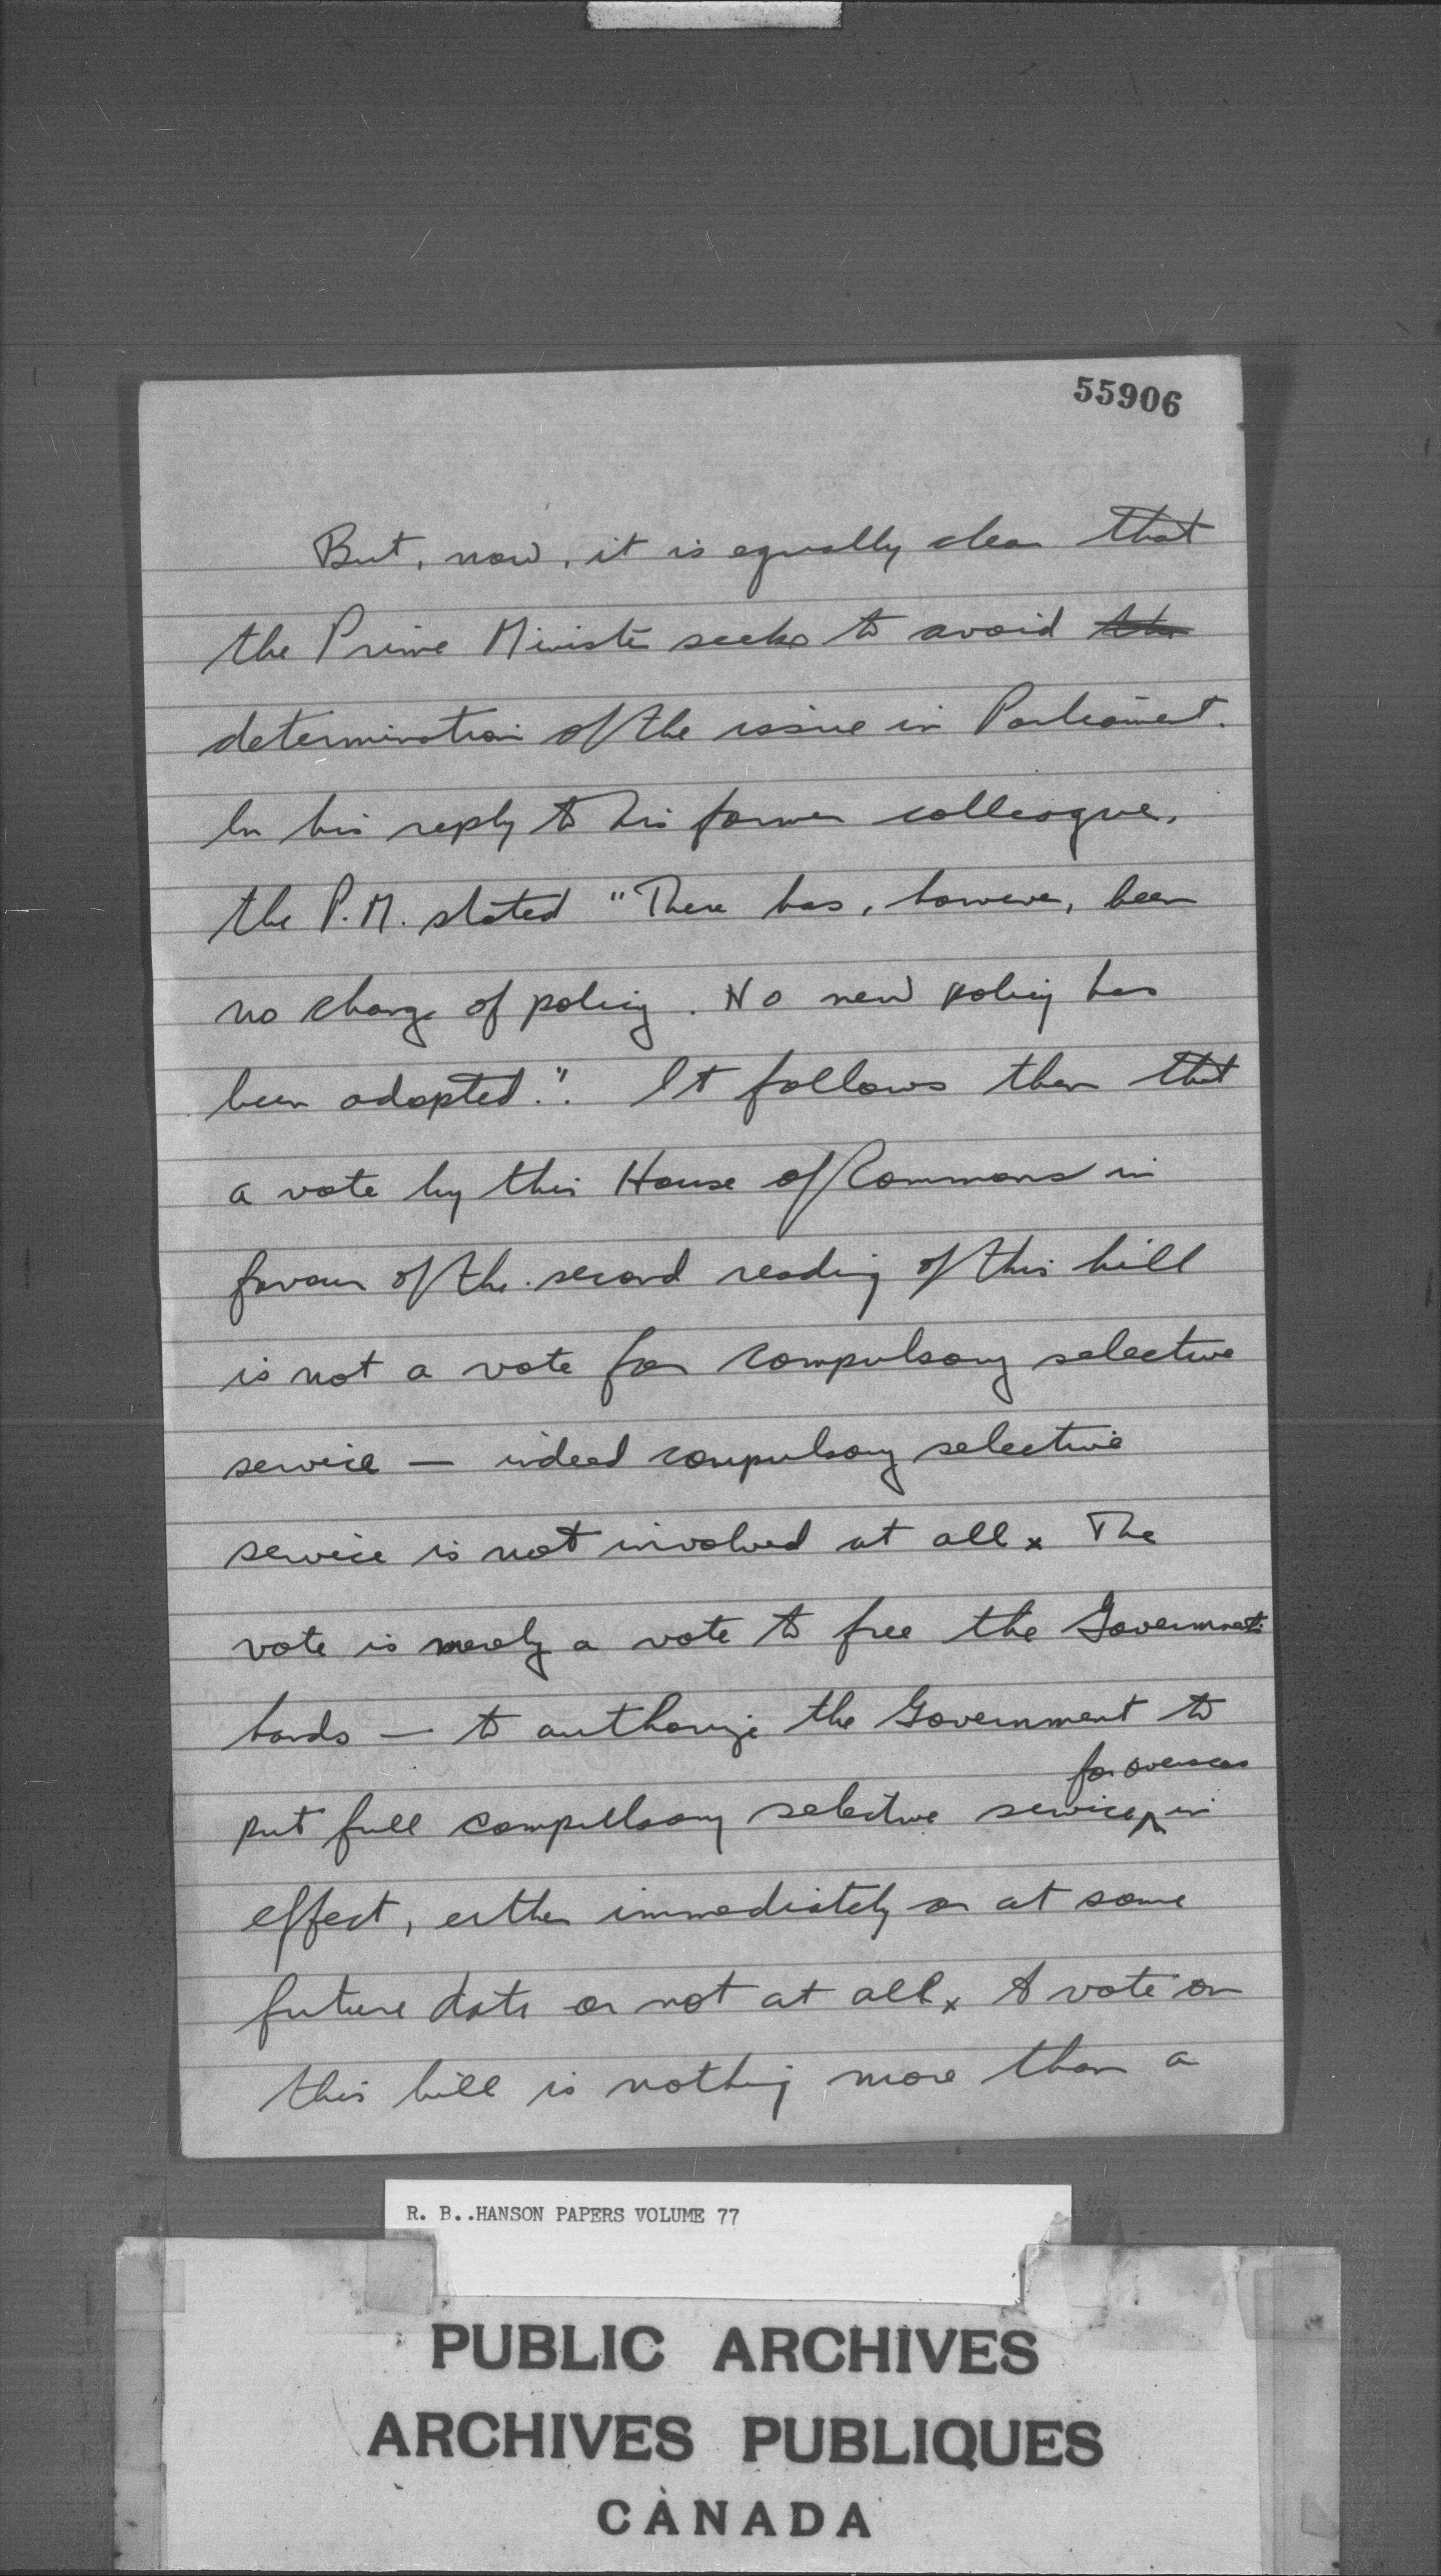 55906
But, now, it is equally clear that
the Prime Minister seeks to avoid the
determination of the issue in Parliament.
In his reply to his former colleague,
the P.M. stated "There has, however, been
no change of policy. No new policy has
been adopted.". It follows then that
a vote by this House of Commons in
favour of the second reading of this bill
is not a vote for compulsory selective
service — indeed compulsory selective
service is not involved at all x The
vote is merely a vote to free the Government's
hands — to authorize the Government to
for overseas
put full compulsory selective service ^ in
effect, either immediately or at some
future date or not at all x A vote on
this bill is nothing more than a
R. B..HANSON PAPERS VOLUME 77
PUBLIC ARCHIVES
ARCHIVES PUBLIQUES
CANADA